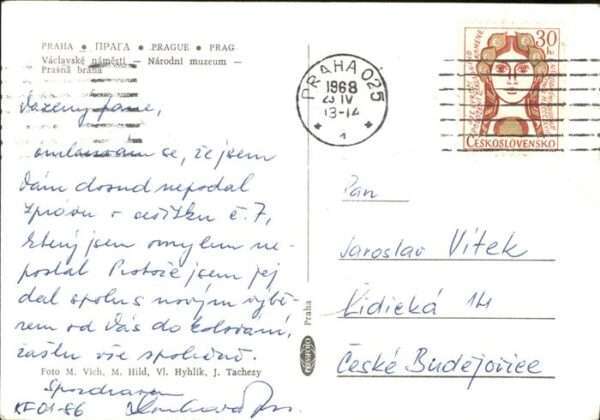 PRAHA • ПРАГА • PRAGUE • PRAG
Václavské náměstí — Národní muzeum —
Prašná brána
Vážený pane,
omlouvám se, že jsem
Vám dosud nepodal
zprávu o sešitku č. 7,
který jsem omylem ne-
poslal. Protože jsem jej
dal spolu s novým výbě-
rem od Vás do kolování,
zašlu vše společně.
Foto M. Vich, M. Hild, Vl. Hyhlík, J. Tachezy
S pozdravem
KF 01-86
PRAHA 025
1968
IV
13-14
1
30
h
ČESKOSLOVENSKO
Pan
Jaroslav Vítek
Lidická 14
České Budějovice
Praha